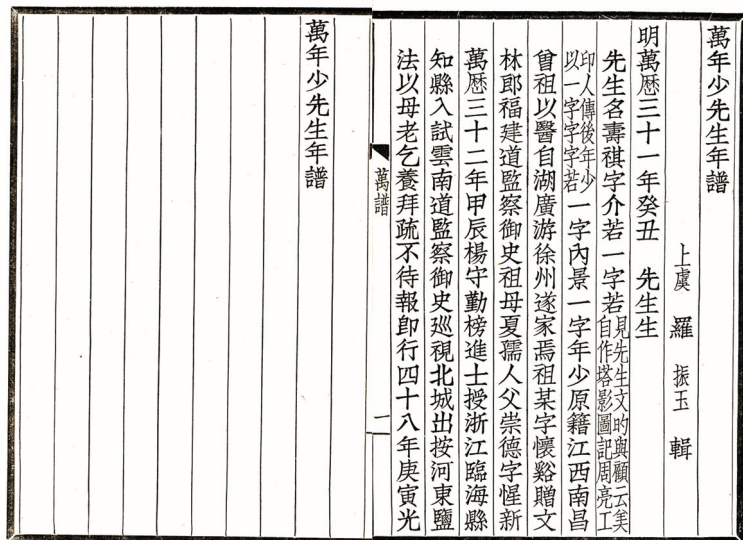 萬年少先生年譜
上虞 羅 振玉 輯
明萬曆三十一年癸丑 先生生
先生名壽祺字介若一字若見先生文昀與顧云美自作塔影圖記周亮工
印人傳後年少以一字字字若一字內景一字年少原籍江西南昌
曾祖以醫自湖廣游徐州遂家焉祖某字懷谿贈文
林郎福建道監察御史祖母夏孺人父崇德字惺新
萬曆三十二年甲辰楊守勤榜進士授浙江臨海縣
知縣入試雲南道監察御史巡視北城出按河東鹽
法以母老乞養拜疏不待報即行四十八年庚寅光
萬譜
一
萬年少先生年譜